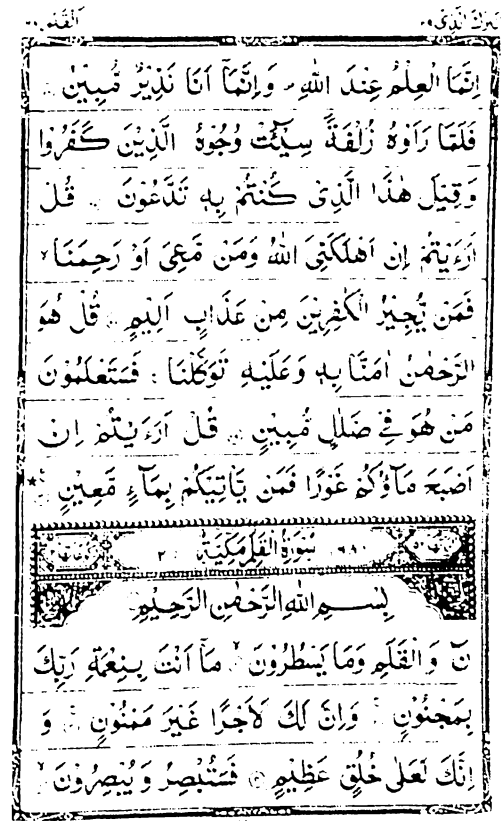 تبرك الذى ٢٩
القلم ٦٨
اِنَّمَا الْعِلْمُ عِنْدَ اللّٰهِ ۪ وَاِنَّمَاۤ اَنَا نَذِيْرٌ مُّبِيْنٌ
فَلَمَّا رَاَوْهُ زُلْفَةً سِيْٓـَٔتْ وُجُوْهُ الَّذِيْنَ كَفَرُوْا
وَقِيْلَ هٰذَا الَّذِىْ كُنْتُمْ بِهٖ تَدَّعُوْنَ قُلْ
اَرَءَيْتُمْ اِنْ اَهْلَكَنِىَ اللّٰهُ وَمَنْ مَّعِىَ اَوْ رَحِمَنَا ۙ
فَمَنْ يُّجِيْرُ الْكٰفِرِيْنَ مِنْ عَذَابٍ اَلِيْمٍ قُلْ هُوَ
الرَّحْمٰنُ اٰمَنَّا بِهٖ وَعَلَيْهِ تَوَكَّلْنَا ۚ فَسَتَعْلَمُوْنَ
مَنْ هُوَ فِىْ ضَلٰلٍ مُّبِيْنٍ قُلْ اَرَءَيْتُمْ اِنْ
اَصْبَحَ مَآؤُكُمْ غَوْرًا فَمَنْ يَّاْتِيْكُمْ بِمَآءٍ مَّعِيْنٍ
(٦٨) سُوْرَةُ الْقَلَمِ مَكِّيَّةٌ (٢)
بِسْمِ اللّٰهِ الرَّحْمٰنِ الرَّحِيْمِ
نٓ وَالْقَلَمِ وَمَا يَسْطُرُوْنَ ۙ مَاۤ اَنْتَ بِنِعْمَةِ رَبِّكَ
بِمَجْنُوْنٍ ۚ وَاِنَّ لَكَ لَاَجْرًا غَيْرَ مَمْنُوْنٍ ۚ وَ
اِنَّكَ لَعَلٰى خُلُقٍ عَظِيْمٍ فَسَتُبْصِرُ وَيُبْصِرُوْنَ ۙ